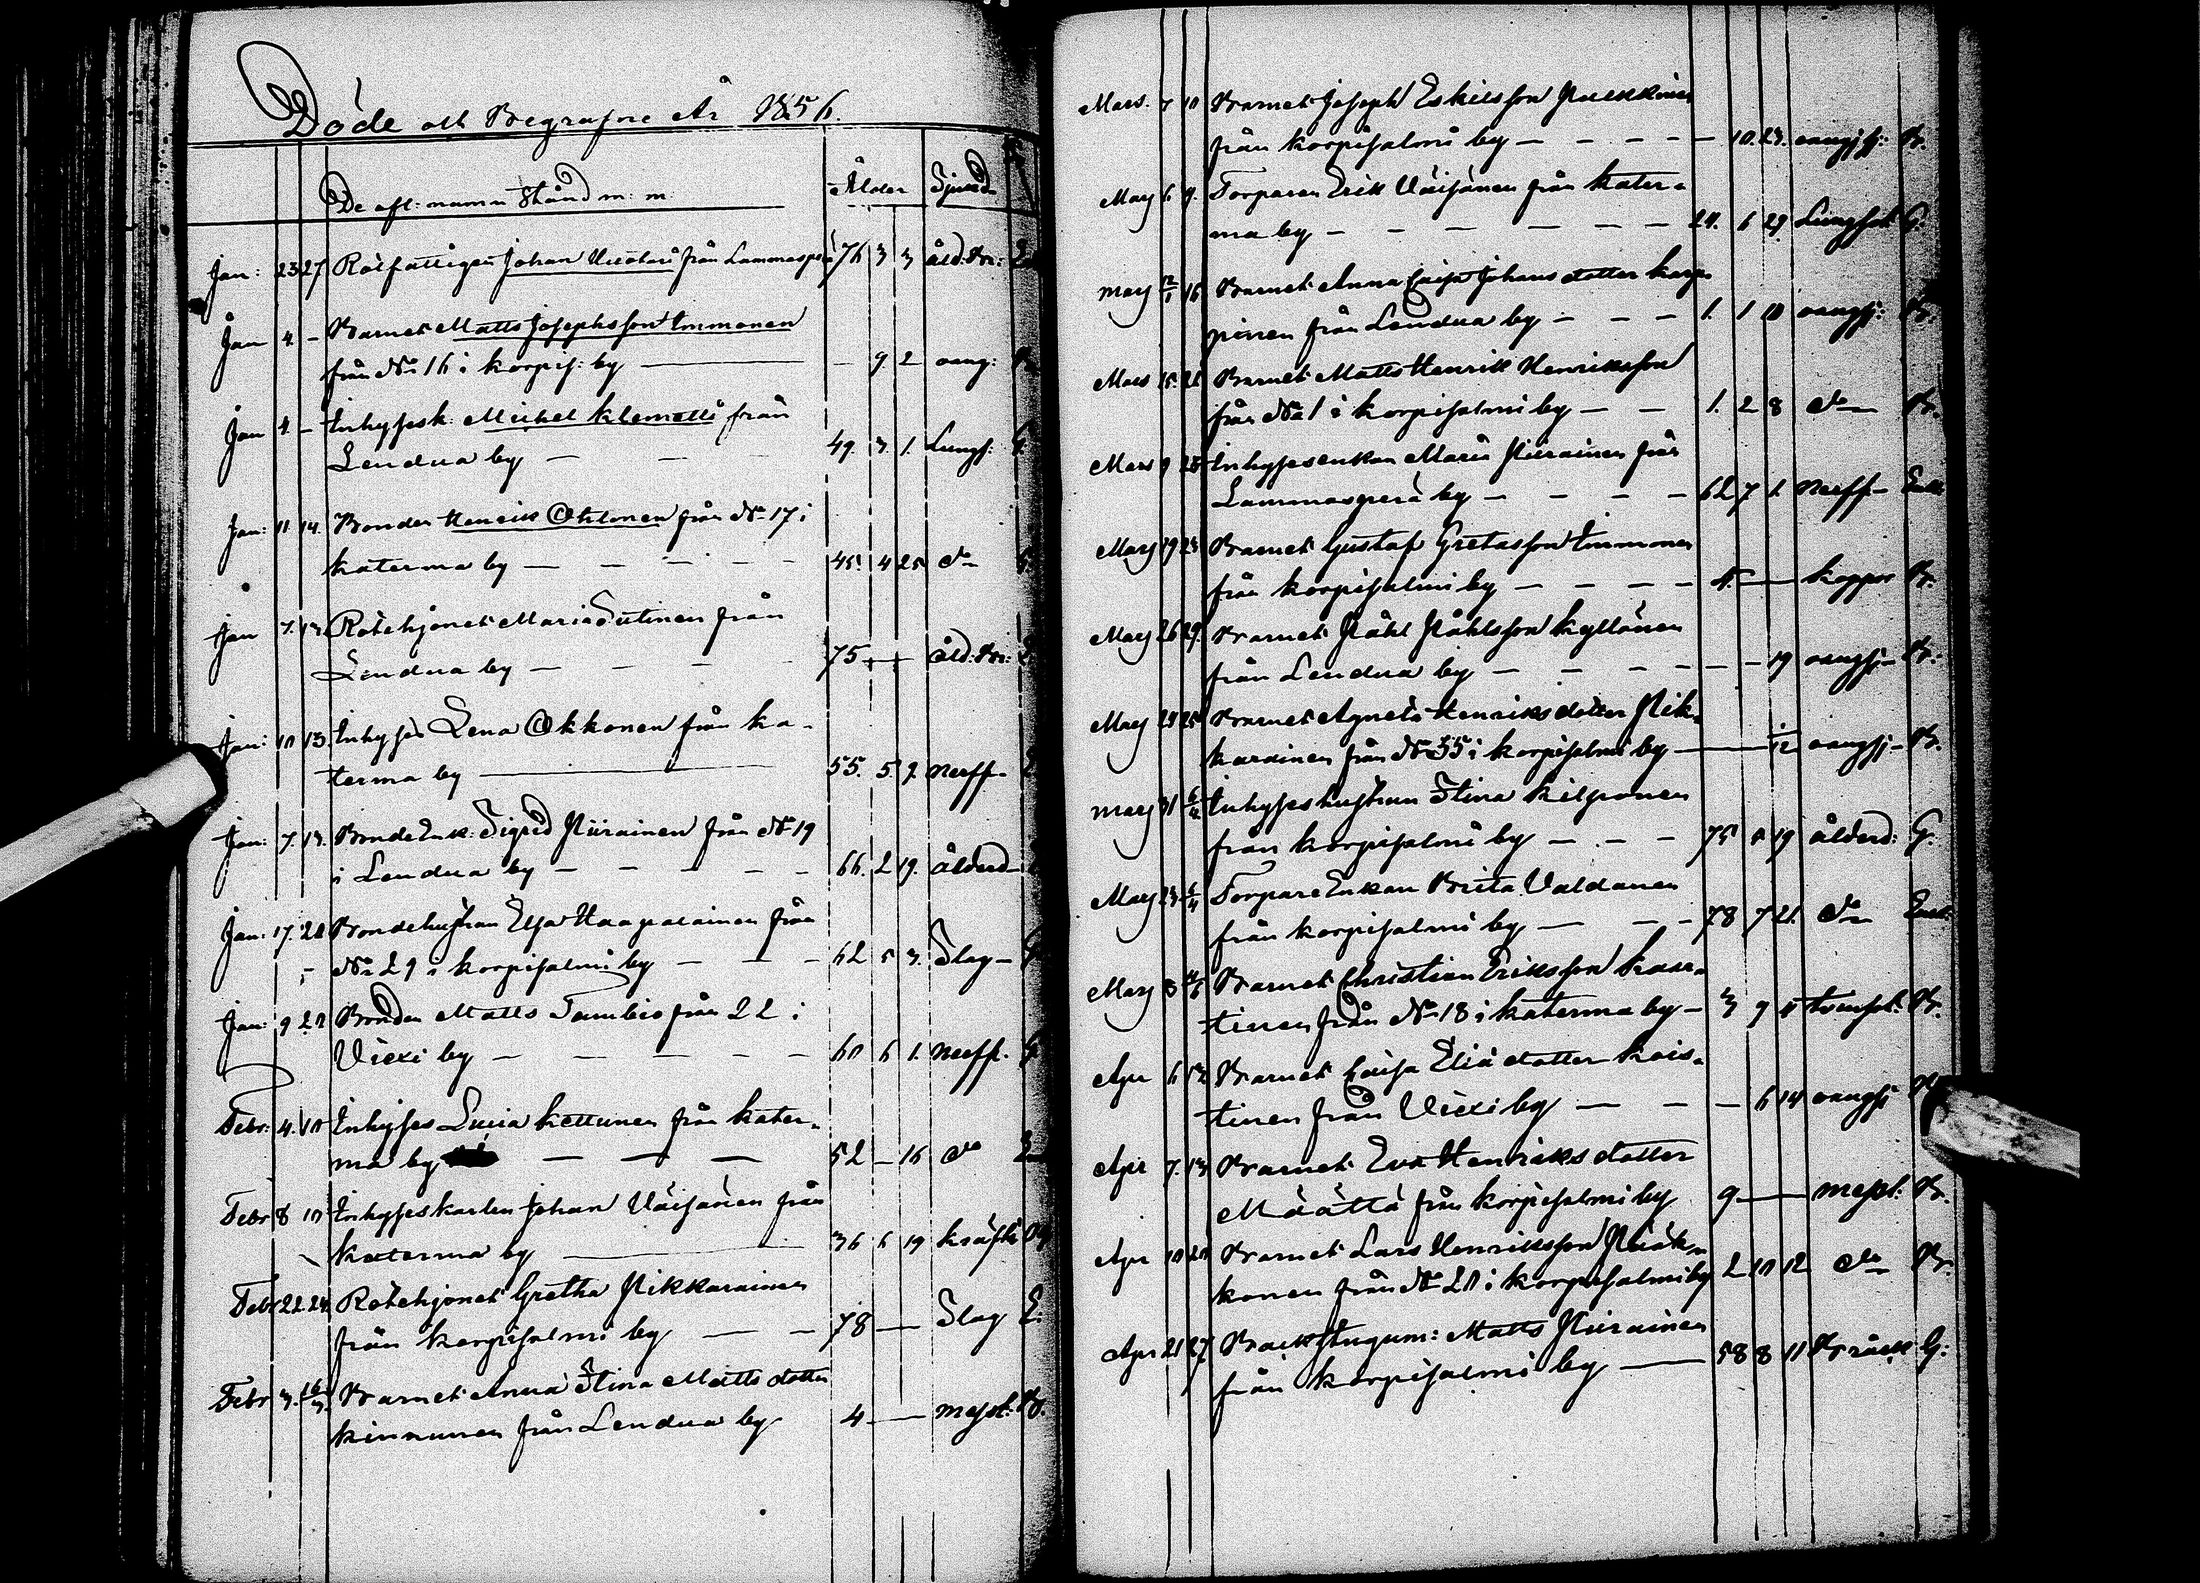 Döde och Begrafne År 1856.
De afl: namn Stånd m: m. Ålder Sjukd
Jan: 23 27 Rotfattigen Johan från Lammasperä 76 3 3 åld: Br:
Jan 2 - Barnet Matts Josephsson Immonen
från No 16 i Korpis: by — — 9 2 oang:
Jan 2 - Inhysesk. Michel Klemetti från
Lendua by — — — 49. 3. 1. Lungs: G
Jan: 11 14. Bonden Henrik Ohtonen från No 17 i
Katerma by — — — — — 45. 4 25 do G
Jan 7. 13. Rotehjonet Maria Sutinen från
Lendua by — — — 75 — — åld: Br:
Jan: 10 13. Inhyses Lena Okkonen från Ka-
terma by — 55. 5. 9. Nerff-
Jan: 7. 13. BondeEnk: Sigrid Piirainen från No 19
i Lendua by — — — — — 66. 2 19. ålderd-
Jan: 17. 20 Bondehustrun Elsa Haapalainen från
No 29 i Korpisalmi by — — — 62 5 3. Slag- G
Jan: 9 20 Bonden Matts Tambio från 22 i
Viexi by — — — — — 60 6 1. Nerff. G
Febr: 4. 10 Inhyses Lucia Kettunen från Kater-
ma by — — — 52 — 16 do
Febr 8 10 Inhyseskarlen Johan Väisänen från
Katerma by — 36 6 19
Febr 22. 24. Rotehjonet Gretha Pikkarainen
från Korpisalmi by — — 78 — Slag E.
Febr 3. 16/3. Barnet Anna Stina Matts dotter
Kinnunen från Lendua by 4 — messl: Br.
Mars. 7 10 Barnet Joseph Eskilsson
från Korpisalmi by — — — — — 10. 23. oangifs: Br.
Mars 6 9. Torparen Erik Väisänen från Kater-
ma by — — — — — — 6 29 Lungsot G.
Mars 12/1 16 Barnet Anna Caisa Johans dotter Karp-
pinen från Lendua by — — — 1. 1 10 oangifs: Br.
Mars 15. 21 Barnet Matts Henrik Henriksson
från No 1 i Korpisalmi by — — 1. 2 8 do Br.
Mars 9 23 Inhysesenkan Maria Piirainen från
Lammasperä by — — — — 62 7 1. Nerff- Enk
Mars 19 23 Barnet Gustaf Gretasson Immonen
från Korpisalmi by — — — — 4. — koppor Br.
Mars 26 29. Barnet Påhl Påhlsson Kyllönen
från Lendua by — — — — — — 19 oangifs- Br.
Mars 24 25 Barnet Agneta Henriks dotter Pik-
karainen från No 35 i Korpisalmi by — 1/12 oangifs- Br.
Mars 31 6/4 Inhyseshustrun Stina Kilponen
från Korpisalmi by — — — 75 5 19 ålderd: G.
Mars 23. 6/4 TorpareEnkan Brita Valdanen
från Korpisalmi by — — — 78 7 21. do Enk:
Mars 3 Barnet Christian Eriksson Kaar-
tinen från No 18 i Katerma by — 3 9 Br.
Apr 6 13 Barnet Caisa Elia dotter Kois-
tinen från Viexi by — — — 6 14 oangifs Br
Apr 7. 13 Barnet Eva Henriks dotter
Määttä från Korpisalmi by 9 — messl: Br.
Apr 10 20 Barnet Lars Henriksson Pääk-
konen från No 20 i Korpisalmi by 2 10 12 do Br.
Apr 21 27 Backstugum: Matts Piirainen
från Korpisalmi by — 58 8 11 Bråck G: